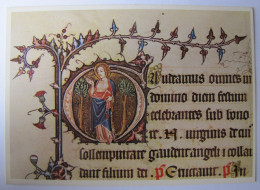 Gaudeamus omnes in
domino diem festum
celebrantes sub hono
re. N. virginis de cui
sollempnitate gaudent angeli et collau
dant filium dei. ps Eructauit. ps In